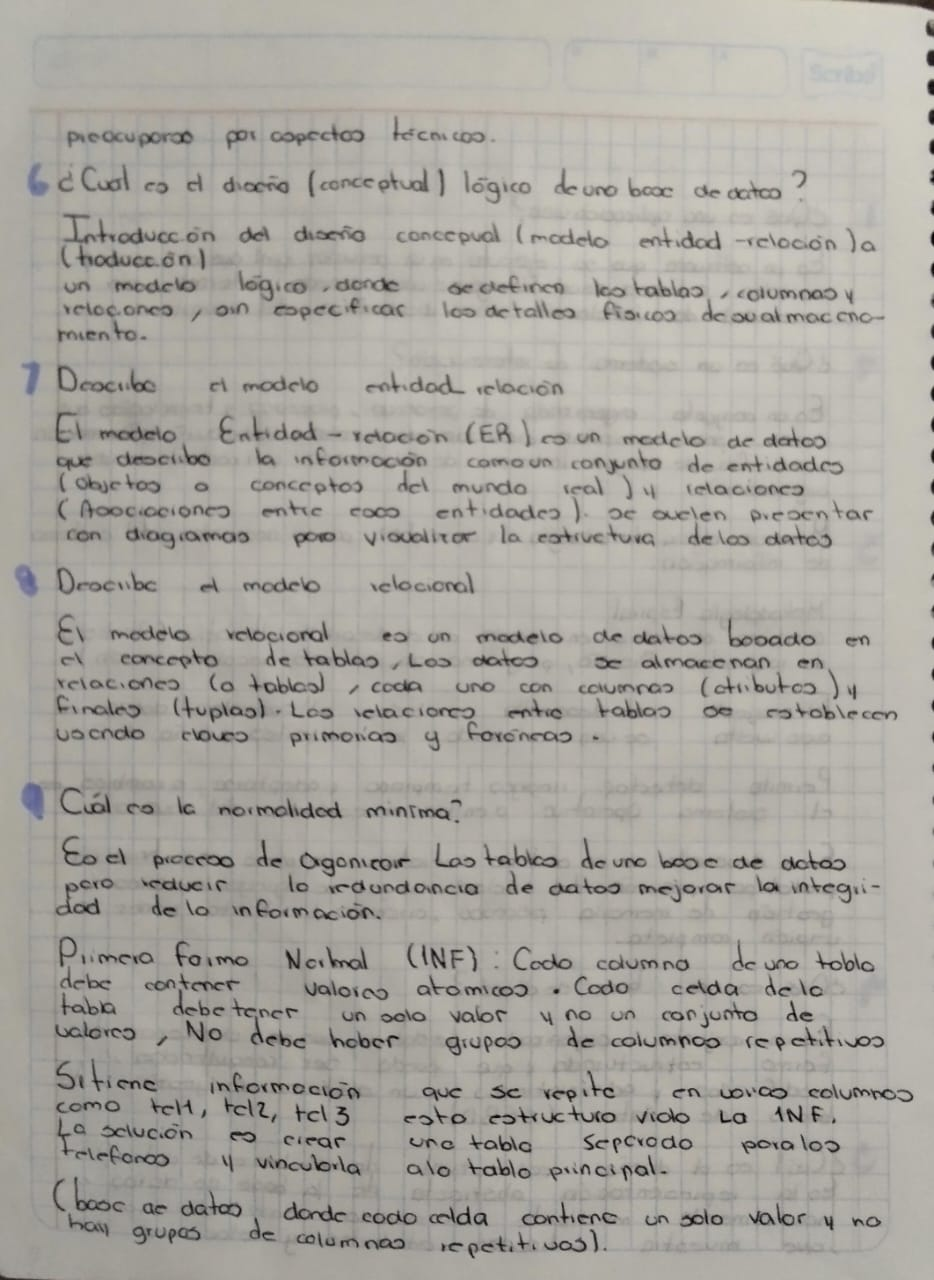 Scribe
preocuparse por aspectos técnicos.
6 ¿Cual es el diseño (conceptual) lógico de una base de datos?
Introducción del diseño concepual (modelo entidad -relación) a
(traducción)
un modelo lógico, donde se definen las tablas, columnas y
relaciones, sin especificar los detalles físicos de su almacena-
miento.
7 Describe el modelo entidad relación
El modelo Entidad - relación (ER) es un modelo de datos
que describe la información como un conjunto de entidades
(objetos o conceptos del mundo real) y relaciones
(Asociaciones entre esas entidades). se suelen presentar
con diagramas para visualizar la estructura de los datos
8 Describe el modelo relacional
El modelo relacional es un modelo de datos basado en
el concepto de tablas, Los datos se almacenan en
relaciones (o tablas), cada una con columnas (atributos) y
finales (tuplas). Las relaciones entre tablas se establecen
usando claves primarias y foráneas.
9 Cuál es la normalidad minima?
Es el proceso de Agonicair Las tablas de una base de datos
para reducir la redundancia de datos mejorar la integri-
dad de la información.
Primera forma Normal (1NF): Cada columna de una tabla
debe contener valores atómicos. Cada celda de la
tabla debe tener un solo valor y no un conjunto de
valores, No debe haber grupos de columnas repetitivos
Si tiene información que se repite en varias columnas
como tel1, tel2, tel3 esta estructura viola La 1NF.
La solución es crear una tabla separada para los
telefonos y vincularla a la tabla principal.
(base de datos donde cada celda contiene un solo valor y no
hay grupos de columnas repetitivas).